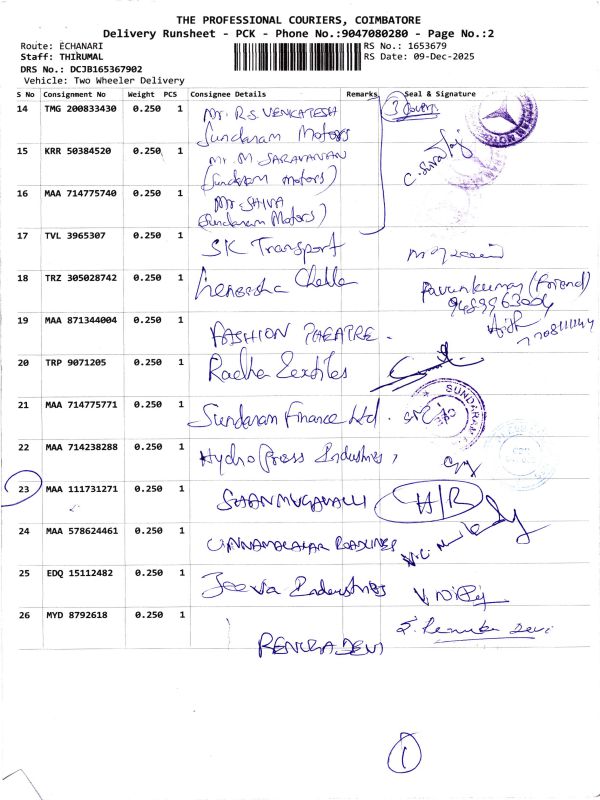 THE PROFESSIONAL COURIERS, COIMBATORE
Delivery Runsheet - PCK - Phone No.:9047080280 - Page No.:2
Route: ECHANARI
RS No.: 1653679
Staff: THIRUMAL
RS Date: 09-Dec-2025
DRS No.: DCJB165367902
Vehicle: Two Wheeler Delivery
S No Consignment No Weight PCS Consignee Details Remarks Seal & Signature
14 TMG 200833430 0.250 1 Mr. R.S. VENKATESH 3 Covers
Sundaram Motors
15 KRR 50384520 0.250 1 Mr. M SARAVANAN
(Sundaram Motors)
16 MAA 714775740 0.250 1 Mr SHIVA
(Sundaram Motors)
17 TVL 3965307 0.250 1 SK Transport
18 TRZ 305028742 0.250 1 Pavunkumar (Friend)
19 MAA 871344004 0.250 1 FASHION THEATRE.
20 TRP 9071205 0.250 1 Radha Textiles
21 MAA 714775771 0.250 1 Sundaram Finance Ltd. SUNDARAM
22 MAA 714238288 0.250 1 Hydro Press Industries,
23 MAA 111731271 0.250 1 SHANMUGAVALLI H/R
24 MAA 578624461 0.250 1 ROADLINES
25 EDQ 15112482 0.250 1 Jeeva Industries
26 MYD 8792618 0.250 1 RENUKA DEVI
1